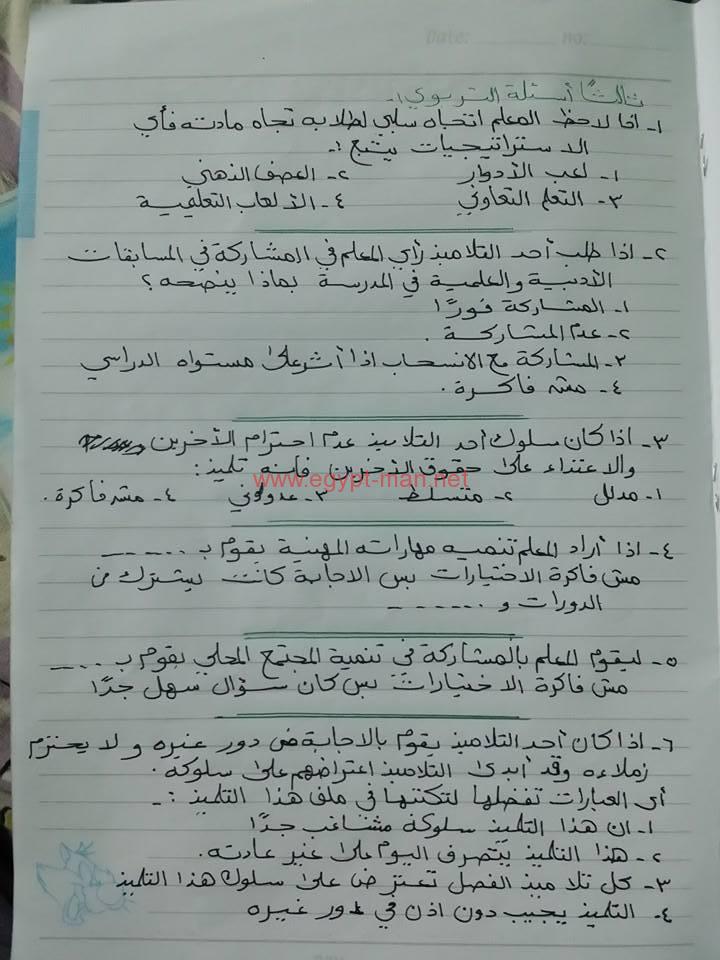 Date: no:
ثالثًا أسئلة التربوي :-
١- اذا لاحظ المعلم اتجاه سلبي لطلابه تجاه مادته فأي
الاستراتيجيات يتبع :-
١- لعب الأدوار ٢- العصف الذهني
٣- التعلم التعاوني ٤- الألعاب التعليمية
٢- اذا طلب أحد التلاميذ رأي المعلم في المشاركة في المسابقات
الأدبية والعلمية في المدرسة بماذا ينصحه ؟
١- المشاركة فورًا
٢- عدم المشاركة .
٣- المشاركة مع الانسحاب اذا أثر على مستواه الدراسي
٤- مش فاكرة .
٣- اذا كان سلوك أحد التلاميذ عدم احترام الأخرين
والاعتداء على حقوق الأخرين فإنه تلميذ :
www.egypt-man.net
١- مدلل ٢- متسلط ٣- عدواني ٤- مش فاكرة .
٤- اذا أراد المعلم تنميه مهاراته المهنية يقوم بـ ......
مش فاكرة الاختيارات بس الاجابة كانت يشترك في
الدورات و ......
٥- ليقوم المعلم بالمشاركة في تنمية المجتمع المحلي يقوم بـ ....
مش فاكرة الاختيارات بس كان سؤال سهل جدًا
٦- اذا كان أحد التلاميذ يقوم بالاجابة في دور غيره ولا يحترم
زملاءه وقد أبدى التلاميذ اعتراضهم على سلوكه .
أى العبارات تفضلها لتكتبها في ملف هذا التلميذ :-
١- ان هذا التلميذ سلوكه مشاغب جدًا
٢- هذا التلميذ يتصرف اليوم على غير عادته .
٣- كل تلاميذ الفصل تعترض على سلوك هذا التلميذ
٤- التلميذ يجيب دون اذن في دور غيره